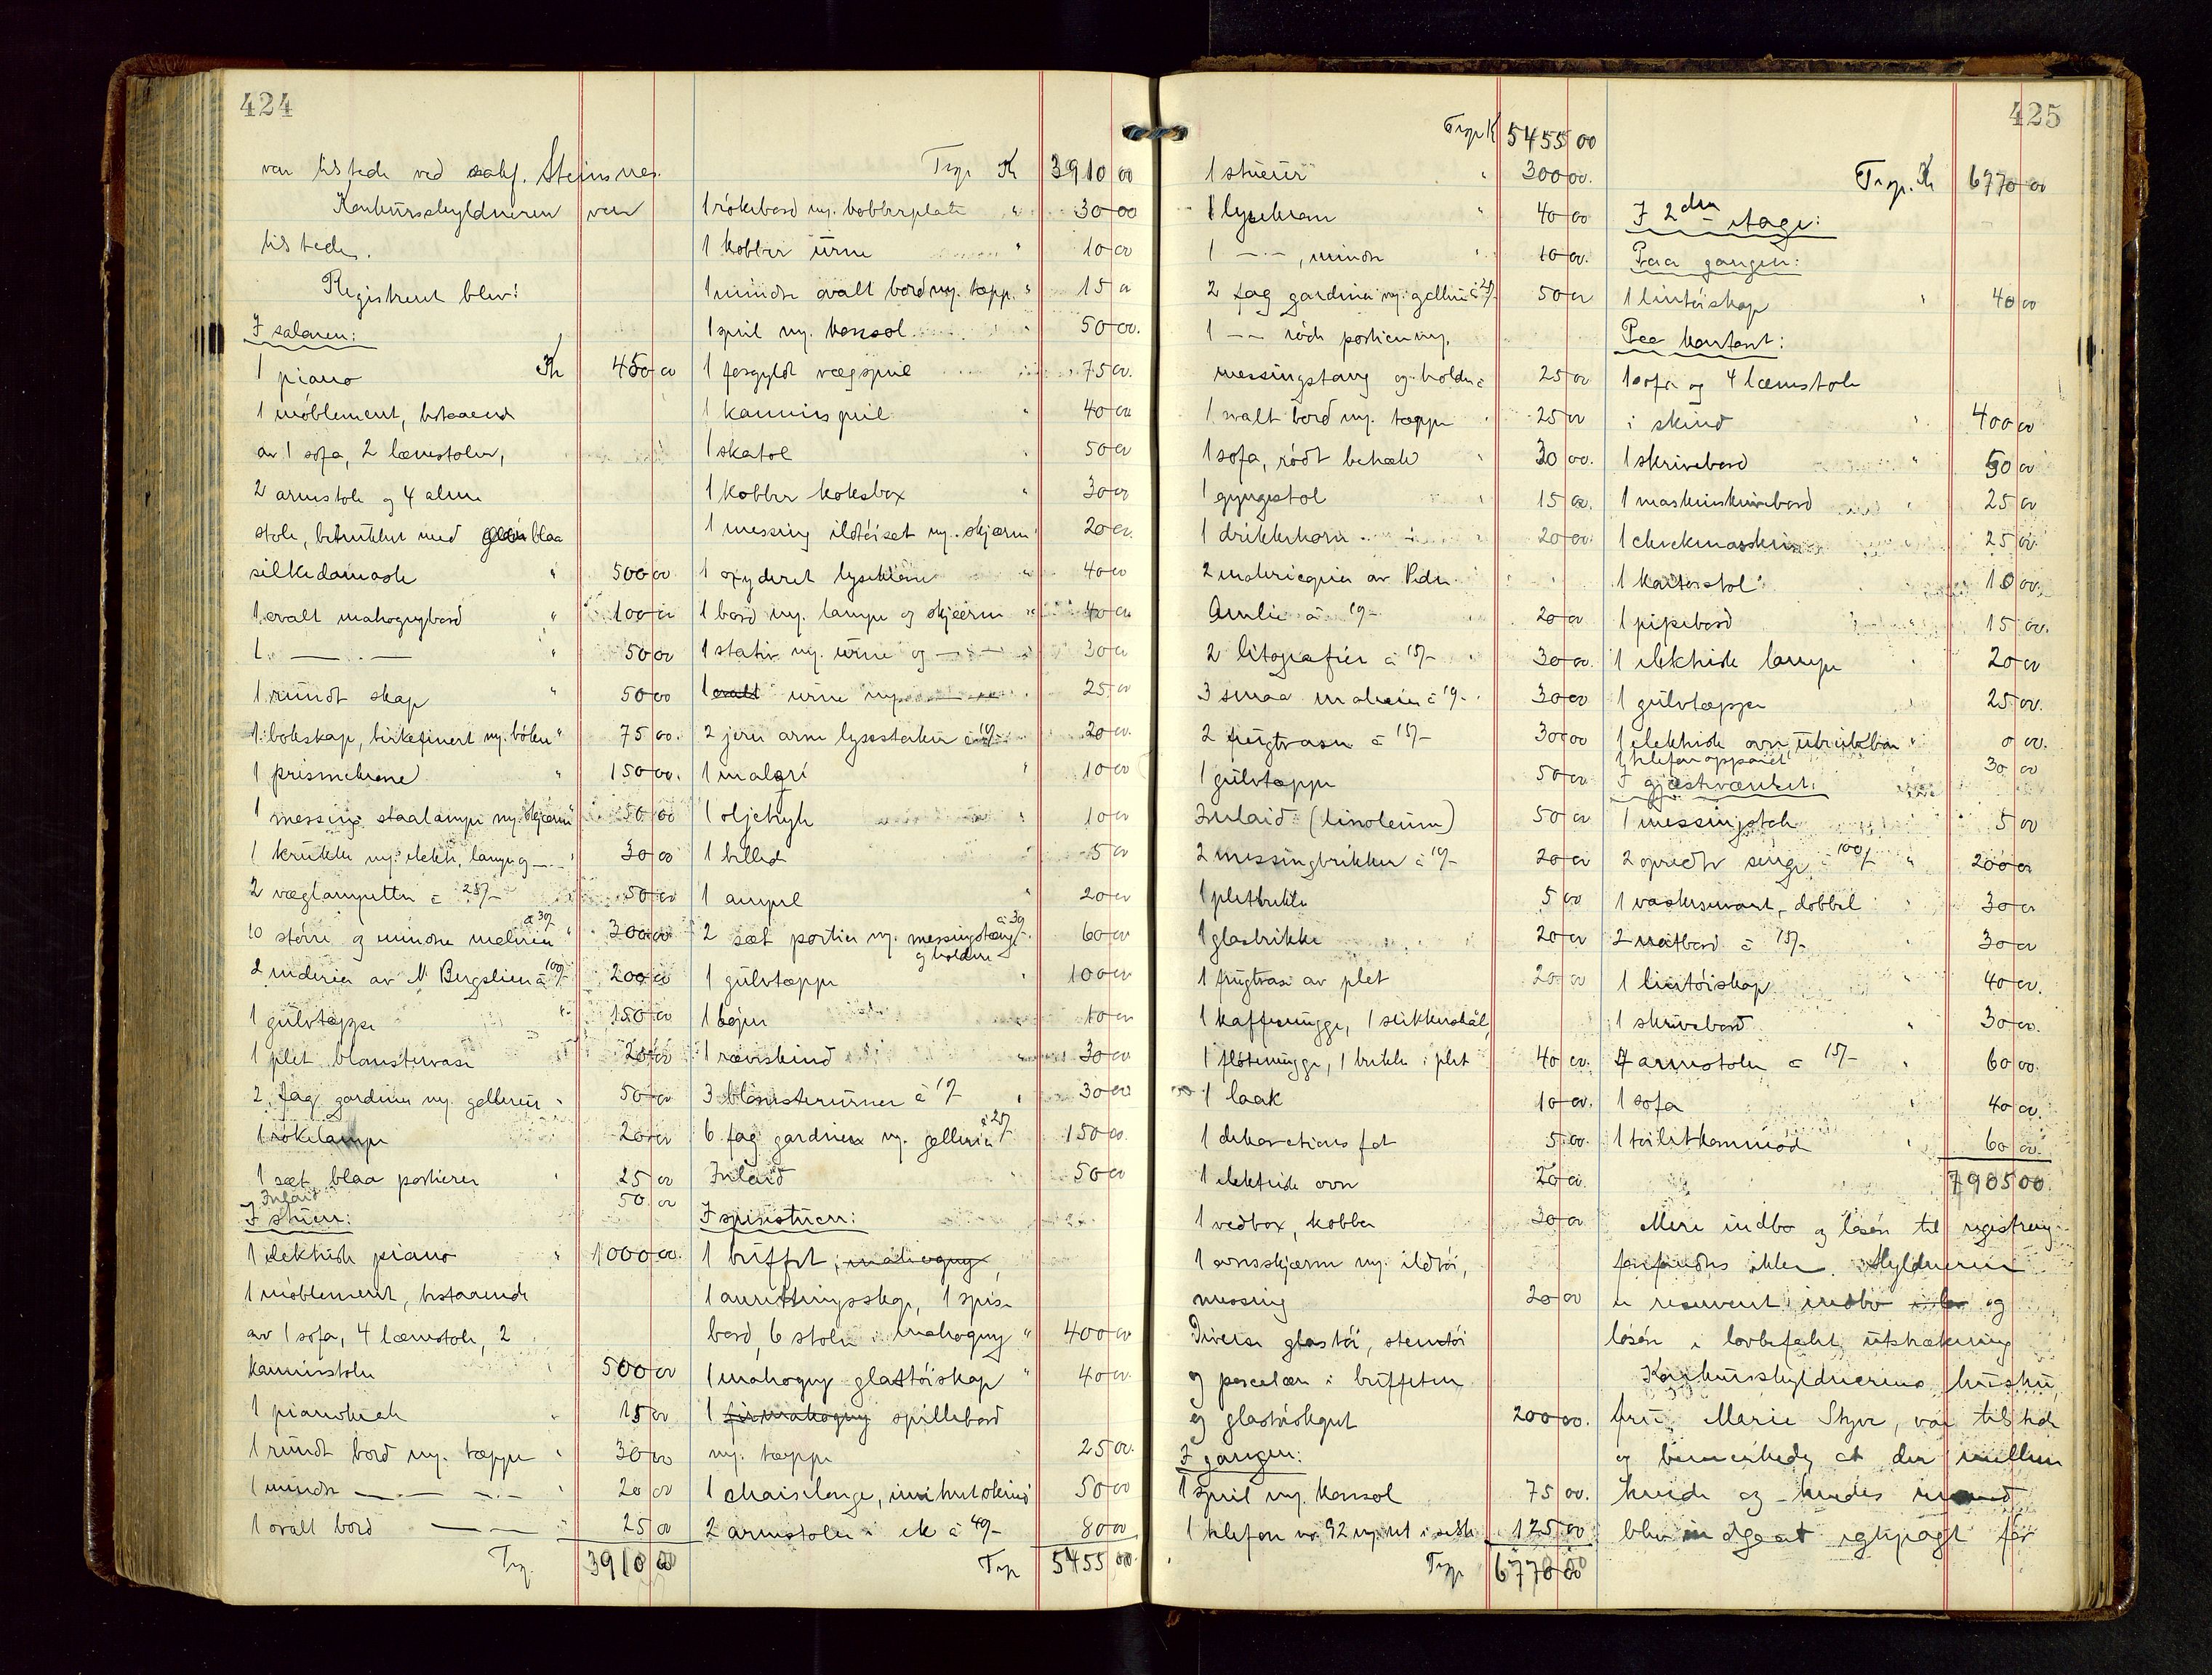 424
var tilstede ved sakf. Steinsnes.
Konkursskyldneren var
tilstede.
Registrert blev:
I salonen:
1 piano Kr 450 00
1 møblement, bestaaende
av 1 sofa, 2 lænestoler,
2 armstole og 4 alm.
stole, betrukket med blaa
silkedamask " 500 00
1 ovalt mahognybord " 100 00
1 — . — " 50 00
1 rundt skap " 50 00
1 bokskap, birkefinert m. bøker " 75 00.
1 prismekrone " 150 00.
1 messing staalampe m. skjærm " 50 00
1 krukke m. elektr. lampe og — . — " 30 00
2 væglampetter à 25/- 50 00
10 større og mindre malerier à 30/- " 300 00
2 malerier av N. Bergslien à 100/- 200 00
1 gulvtæppe " 150 00
1 plet blomstervase " 20 00
2 fag gardiner m. gallerier " 50 00
1 røkelampe 20 00
1 sæt blaa portierer " 25 00
Inlaid 50 00
I stuen:
1 elektrisk piano " 1000 00.
1 møblement, bestaaende
av 1 sofa, 4 lænestole, 2
kaminstoler 500 00
1 pianokrak " 15 00
1 rundt bord m. tæppe " 30 00
1 mindre — . — — . — " 20 00
1 ovalt bord — — " 25 00
Trsp. 3910 00
Trsp. Kr 3910 00
1 røkebord m. kobberplate " 30 00
1 kobber urne " 10 00
1 mindre ovalt bord m. tæpp. " 15 00
1 speil m. konsol " 50 00.
1 forgyldt vægspeil 75 00.
1 kaminspeil " 40 00
1 skatol " 50 00
1 kobber koksbox " 30 00
1 messing ildtøisæt m. skjærm " 20 00.
1 oxyderet lysekrone " 40 00
1 bord m. lampe og skjærm " 40 00
1 stativ m. urne og — . — 30 00
1 ovalt urne m. — — 25 00
2 jern arm lysestaker à 10/- 20 00.
1 maleri " 10 00
1 oljetryk " 10 00
1 billed " 5 00
1 ampel " 20 00
2 sæt portier m. messingstang à 30/- 60 00
og holdere
1 gulvtæppe " 100 00
1 løper 10 00
1 ræveskind " 30 00
3 blomsterurner à 10/- " 30 00
6 fag gardiner m. gallerier à 25/- 150 00.
Inlaid " 50 00
I spisestuen:
1 buffet, mahogny,
1 anretningsskap, 1 spise
bord, 6 stoler i mahogny " 400 00
1 mahogny glastøiskap " 40 00.
1 spillebord
m. tæppe " 25 00.
1 chaiselonge, imitert skind 50 00
2 armstoler i ek à 40/- 80 00
Trsp 5455 00
425
Trsp Kr 5455 00
1 stueur " 300 00.
1 lysekrone " 40 00
1 — . —, mindre " 10 00.
2 fag gardiner m. gallerier à 25/- 50 00
1 — — røde portierer m.
messingstang og holdere 25 00
1 ovalt bord m. tæppe " 25 00
1 sofa, rødt betræk " 30 00.
1 gyngestol " 15 00.
1 drikkehorn " 20 00
2 malerier av Peder
Aulie à 10/- " 20 00
2 litografier à 15/- " 30 00.
3 smaa malerier à 10/- " 30 00
2 frugtvaser à 15/- 30 00
1 gulvtæppe 50 00
Inlaid (linoleum) 50 00
2 messingbrikker à 10/- 20 00
1 pletbrikke 5 00
1 glasbrikke 20 00
1 frugtvase av plet 20 00
1 kaffemugge, 1 sukkerskål,
1 fløtemugge, 1 brikke i plet 40 00.
1 laak 10 00.
1 dekorations fat 5 00.
1 elektrisk ovn 20 00.
1 vedbox, kobber 30 00
1 ovnsskjærm m. ildtøi,
messing 20 00
Diverse glastøi, stentøi
og porcelæn i buffeten
og glastøiskapet 200 00.
I gangen:
1 speil m. konsol 75 00.
1 telefon no 92 m. ret i selsk 125 00
Trsp 6770 00
Trsp. Kr 6770 00
I 2den etage:
Paa gangen:
1 lintøiskap " 40 00
Paa kontoret:
1 sofa og 4 lænestole
i skind " 400 00
1 skrivebord " 50 00
1 maskinskrivebord " 25 00
1 chekmaskin " 25 00.
1 kontorstol " 10 00.
1 pipebord " 15 00.
1 elektrisk lampe " 20 00
1 gulvtæppe " 25 00.
1 elektrisk ovn, ubrukbar " 0 00.
1 telefonapparat 30 00
I gjæsteværelset:
1 messingstak 5 00
2 opredte senge à 100/- " 200 00
1 vaskeservant, dobbel " 30 00
2 natbord à 15/- " 30 00
1 lintøiskap " 40 00.
1 skrivebord " 30 00.
4 armstoler à 15/- " 60 00.
1 sofa " 40 00.
1 toiletkommode " 60 00.
7905 00.
Mere indbo og løsøre til registrering
forefandtes ikke. Skyldneren
er reservert indbo og
løsøre i lovbefalet utstrækning
Konkursskyldnerens hustru,
fru Marie Styve, var tilstede
og bemerkede, at der mellem
hende og hendes mand
blev indgaat egtepagt før